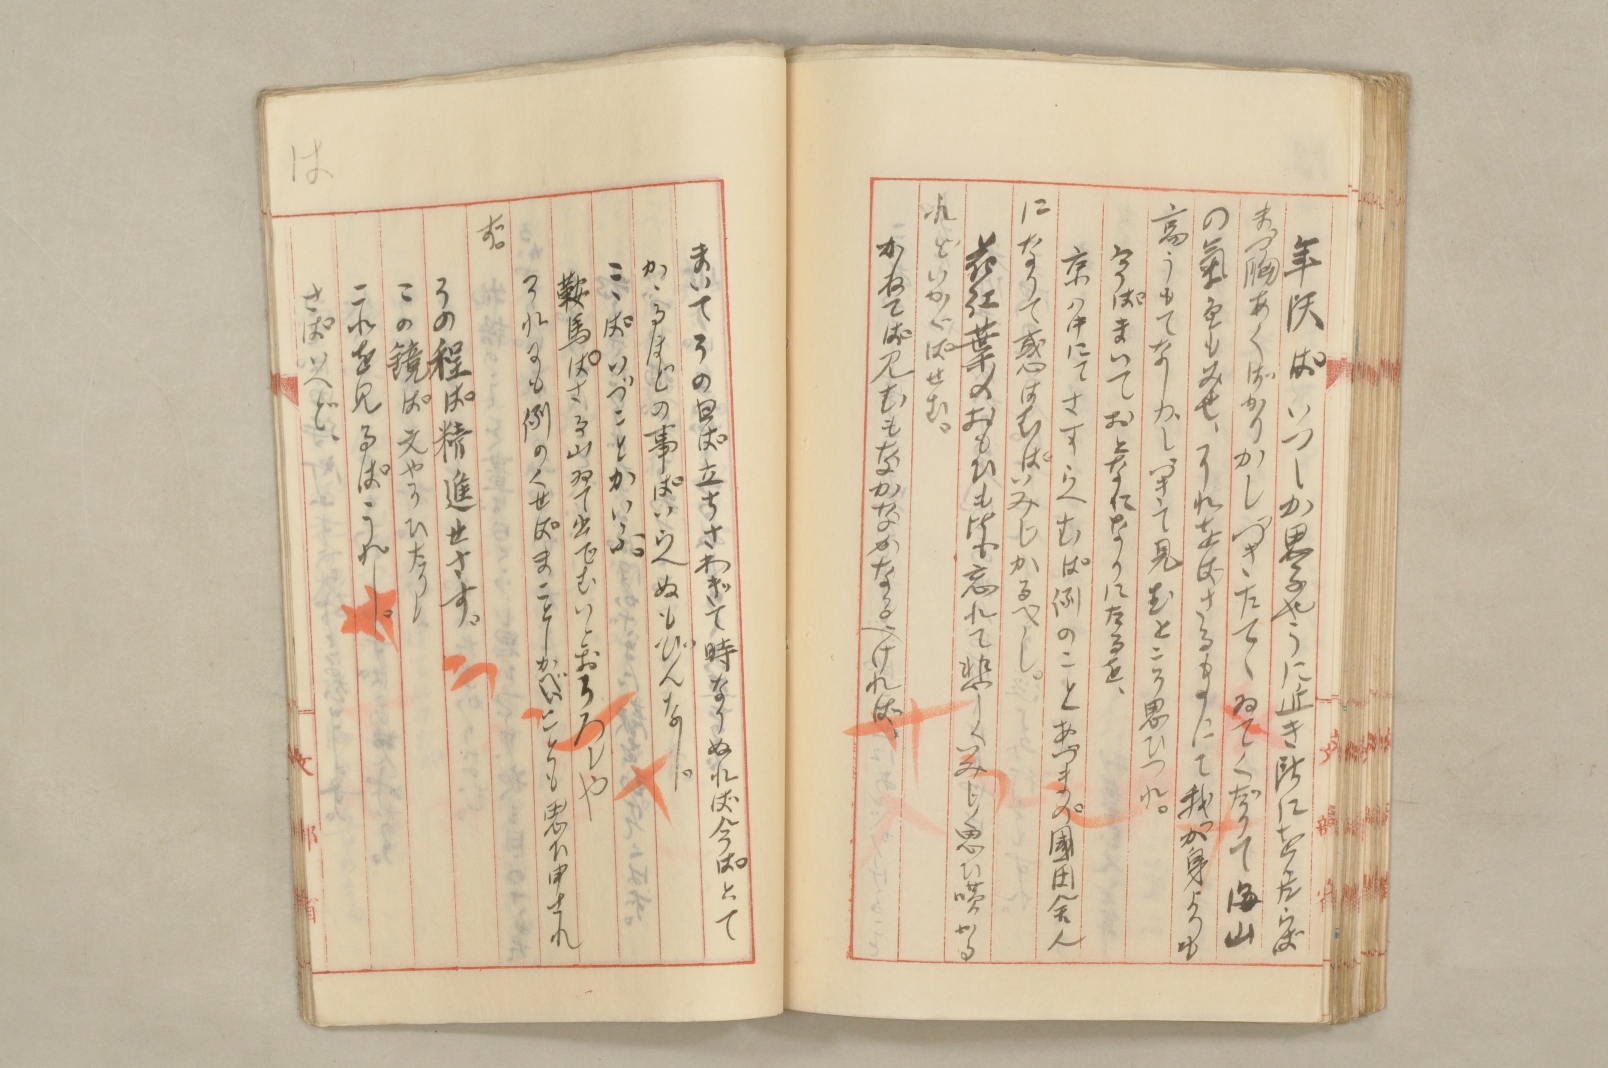 年頃ぱいつしか思ふやうに近き所になりたらば
まづ胸あくばかりかしづきたてゝゐてくだりて海山
の氣色もみせ、それをばさるものにて我が身よりも
高うもてなしかしづきて見むとこそ思ひつれ。
今ぱまいておとなになりにたるを、
京の中にてさすらへむぱ例のことあづまの國田舎人
になりて惑はむぱいみじかるべし。
花紅葉のおもひも皆忘れて悲しくいみじく思ひ嘆かる
れどいかゞぱせむ。
かねてぱ見むもなかなかなるべければ、
は
まいてその日ぱ立ちさわぎて時なりぬれば今ぱとて
かゝるほどの事ぱいらへぬもびんなし。
こゝぱいづことかいふ。
鞍馬ぱさる山ゐて出でむいとおそろしや
それにも例のくせぱまことしかべいことも思ひ申され
ず。
その程ぱ精進せさす。
この鏡ぱ文やそひたりし
これを見るぱうれし。
さぱいへど、
文部省